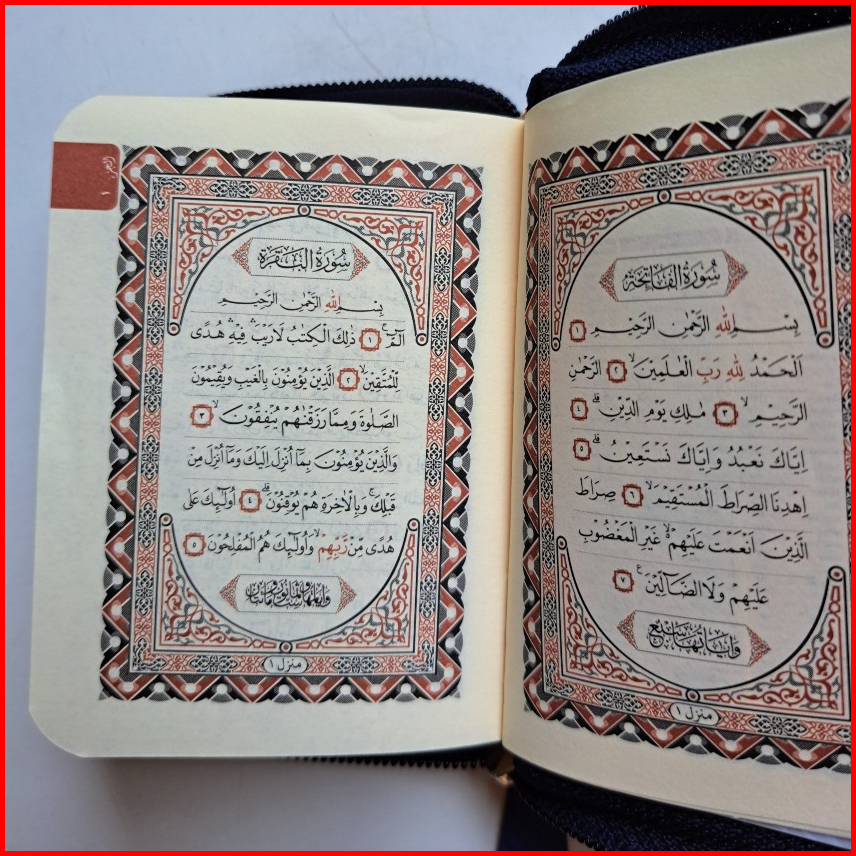 سُوْرَةُ الْفَاتِحَةِ
بِسْمِ اللّٰهِ الرَّحْمٰنِ الرَّحِيْمِ ١
اَلْحَمْدُ لِلّٰهِ رَبِّ الْعٰلَمِيْنَۙ ٢ الرَّحْمٰنِ
الرَّحِيْمِۙ ٣ مٰلِكِ يَوْمِ الدِّيْنِۗ ٤
اِيَّاكَ نَعْبُدُ وَاِيَّاكَ نَسْتَعِيْنُۗ ٥
اِهْدِنَا الصِّرَاطَ الْمُسْتَقِيْمَۙ ٦ صِرَاطَ
الَّذِيْنَ اَنْعَمْتَ عَلَيْهِمْ ەۙ غَيْرِ الْمَغْضُوْبِ
عَلَيْهِمْ وَلَا الضَّاۤلِّيْنَ ࣖ ٧
وَاٰيَاتُهَا سَبْعٌ
منزل ١
الجزء ١
سُوْرَةُ الْبَقَرَةِ
بِسْمِ اللّٰهِ الرَّحْمٰنِ الرَّحِيْمِ
الۤمّۤ ۚ ١ ذٰلِكَ الْكِتٰبُ لَا رَيْبَ ۛ فِيْهِ ۛ هُدًى
لِّلْمُتَّقِيْنَۙ ٢ الَّذِيْنَ يُؤْمِنُوْنَ بِالْغَيْبِ وَيُقِيْمُوْنَ
الصَّلٰوةَ وَمِمَّا رَزَقْنٰهُمْ يُنْفِقُوْنَۙ ٣
وَالَّذِيْنَ يُؤْمِنُوْنَ بِمَآ اُنْزِلَ اِلَيْكَ وَمَآ اُنْزِلَ مِنْ
قَبْلِكَۚ وَبِالْاٰخِرَةِ هُمْ يُوْقِنُوْنَۗ ٤ اُولٰۤىِٕكَ عَلٰى
هُدًى مِّنْ رَّبِّهِمْۙ وَاُولٰۤىِٕكَ هُمُ الْمُفْلِحُوْنَ ٥
منزل ١